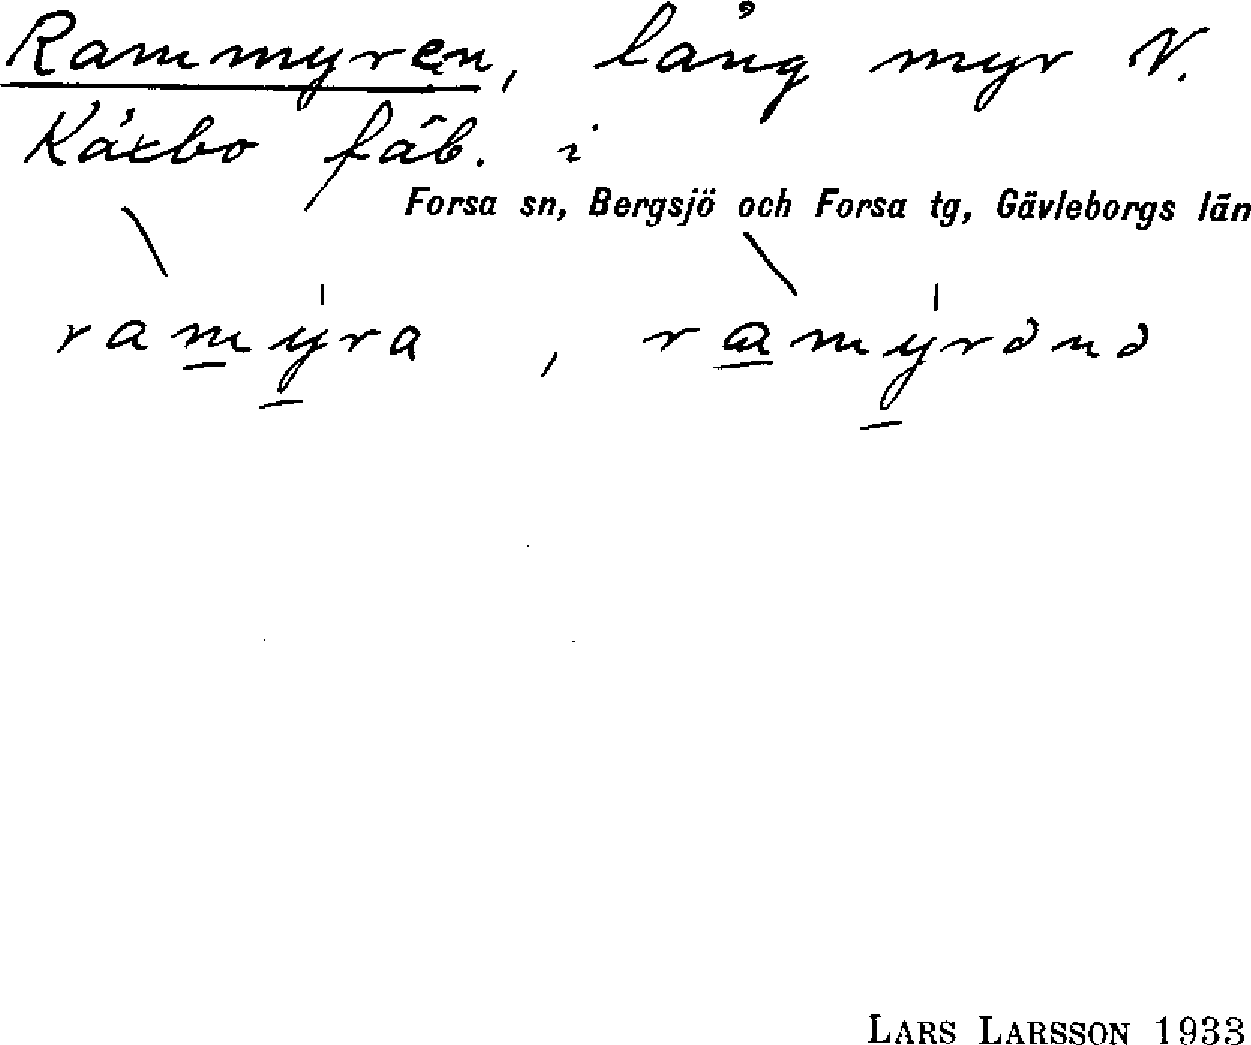 Rammyren, lång myr V.
Kåxbo fäb. i
Forsa sn, Bergsjö och Forsa tg, Gävleborgs län
ramyra , ramyrənə
LARS LARSSON 1933